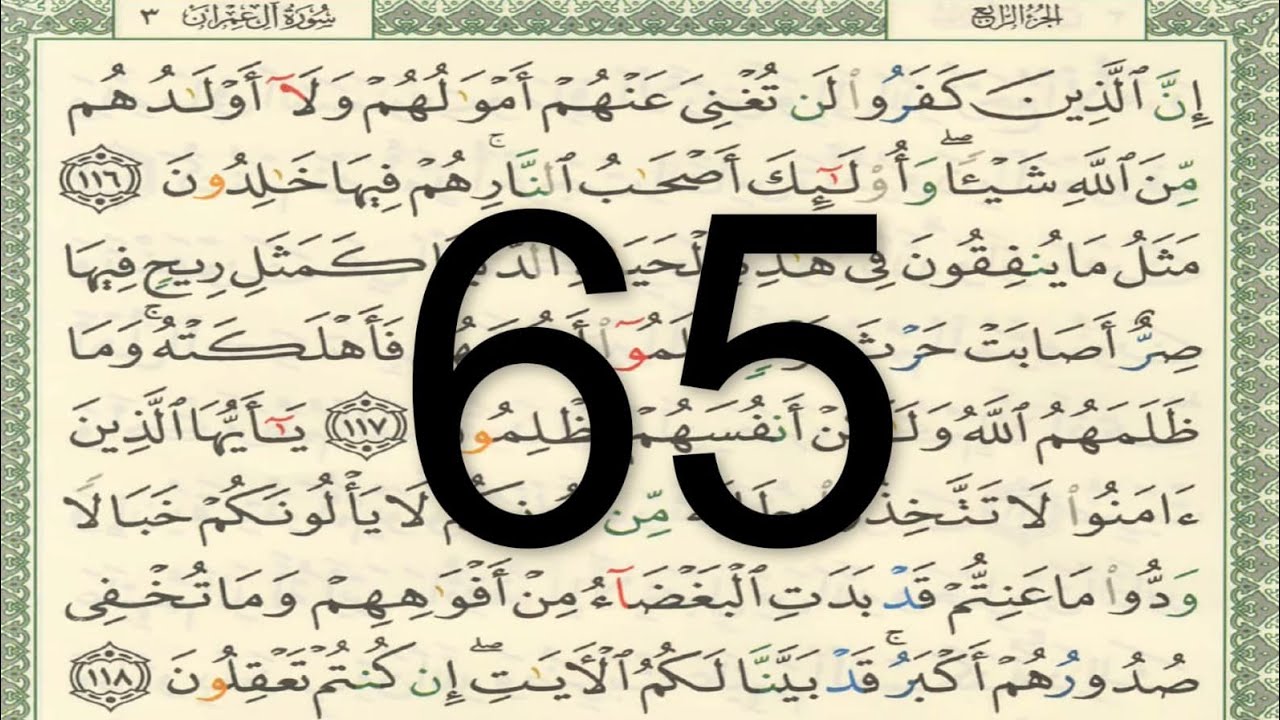 الجزء الرابع
سورة آل عمران ٣
إِنَّ ٱلَّذِينَ كَفَرُوا۟ لَن تُغْنِىَ عَنْهُمْ أَمْوَٰلُهُمْ وَلَآ أَوْلَٰدُهُم
مِّنَ ٱللَّهِ شَيْـًٔا ۖ وَأُو۟لَٰٓئِكَ أَصْحَٰبُ ٱلنَّارِ ۚ هُمْ فِيهَا خَٰلِدُونَ ١١٦
مَثَلُ مَا يُنفِقُونَ فِى كَمَثَلِ رِيحٍ فِيهَا
صِرٌّ أَصَابَتْ فَأَهْلَكَتْهُ ۚ وَمَا
ظَلَمَهُمُ ٱللَّهُ أَنفُسَهُمْ ١١٧ يَٰٓأَيُّهَا ٱلَّذِينَ
ءَامَنُوا۟ لَا مِّن لَا يَأْلُونَكُمْ خَبَالًا
وَدُّوا۟ مَا عَنِتُّمْ قَدْ بَدَتِ ٱلْبَغْضَآءُ مِنْ أَفْوَٰهِهِمْ وَمَا تُخْفِى
صُدُورُهُمْ أَكْبَرُ ۚ قَدْ بَيَّنَّا لَكُمُ ٱلْـَٔايَٰتِ ۖ إِن كُنتُمْ تَعْقِلُونَ ١١٨
65